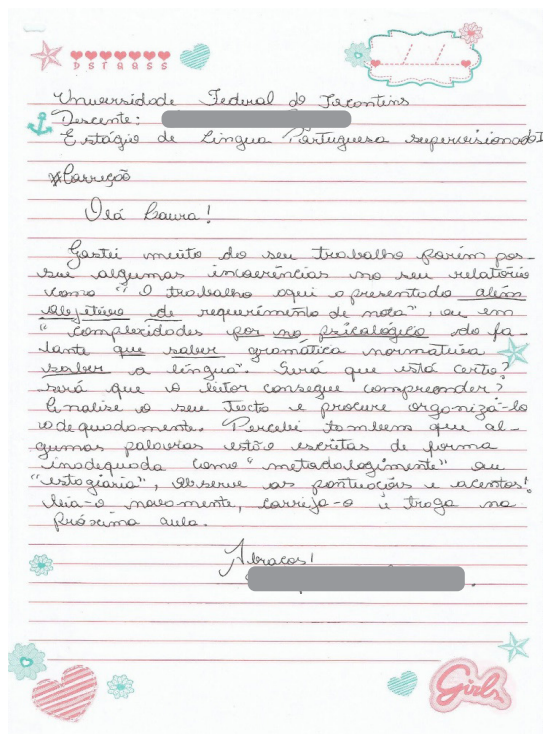 D S T Q Q S S
/ /
Universidade Federal do Tocantins
Discente:
Estágio de Língua Portuguesa supervisionado I
#Correção
Olá Laura!
Gostei muito do seu trabalho porém pos-
sue algumas incoerências no seu relatório
como " O trabalho aqui apresentado além
objetivo de requerimento de nota", ou em
" complexidades por no psicológico do fa-
lante que saber gramática normativa
saber a língua". Será que está certo?
será que o leitor consegue compreender?
Analise o seu Texto e procure organizá-lo
adequadamente. Percebi tambem que al-
gumas palavras estão escritas de forma
inadequada como "metadologimente" ou
"estagiaria", observe as pontuações e acentos!
leia-o novamente, corrija-o e traga na
próxima aula.
Abraços!
Girls